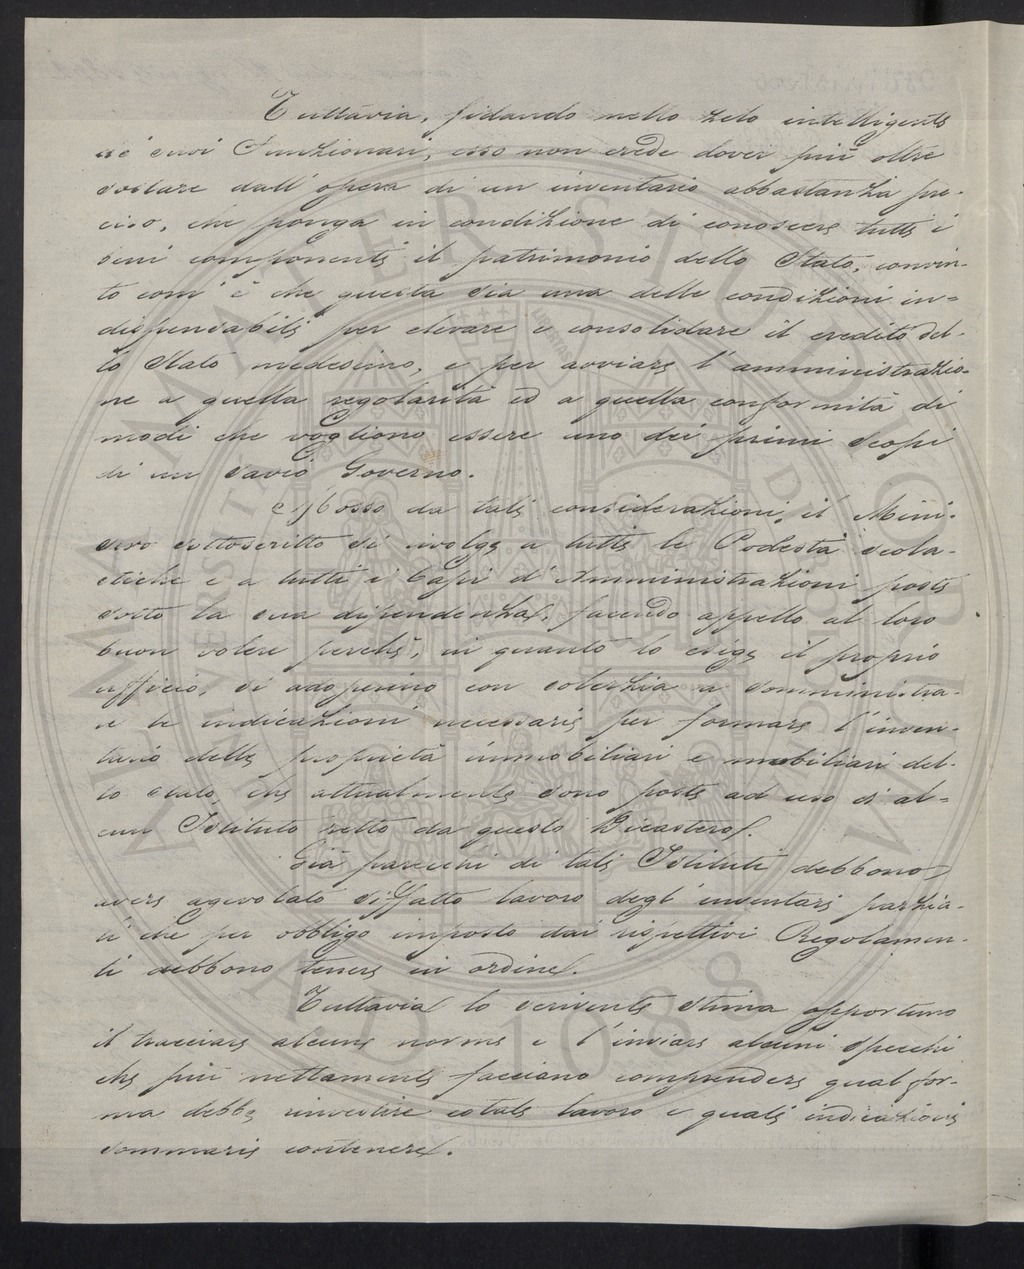 Tuttavia, fidando nello zelo intelligente
de' suoi Funzionari, esso non crede dover più oltre
sostare dall'opera di un inventario abbastanza pre-
ciso, che ponga in condizione di conoscere tutti i
beni componenti il patrimonio dello Stato, convin-
to com'è che questa sia una delle condizioni in=
dispensabili per elevare e consolidare il credito del-
lo Stato medesimo, e per avviare l'amministrazio-
ne a quella regolarità ed a quella conformità di
modi che vogliono essere uno dei primi scopi
di un savio Governo.
Mosso da tali considerazioni, il Mini-
stro sottoscritto si rivolge a tutte le Podestà scola-
stiche e a tutti i Capi d'Amministrazioni poste
sotto la sua dipendenza, facendo appello al loro
buon volere perchè, in quanto lo esige il proprio
ufficio, si adoperino con solerzia a somministra-
re le indicazioni necessarie per formare l'inven-
tario delle proprietà immobiliari e mobiliari del-
lo Stato, che attualmente sono poste ad uso di al=
cun Istituto retto da questo Dicastero.
Già parecchi di tali Istituti debbono
avere agevolato siffatto lavoro degl'inventari parzia-
li che per obbligo imposto dai rispettivi Regolamen-
ti debbono tenere in ordine.
Tuttavia lo scrivente stima opportuno
il tracciare alcune norme e l'inviare alcuni specchi
che più nettamente facciano comprendere qual for-
ma debba rivestire cotale lavoro e quali indicazioni
sommarie contenere.
ALMA MATER STUDIORUM
A.D. 1088
LIBERTAS